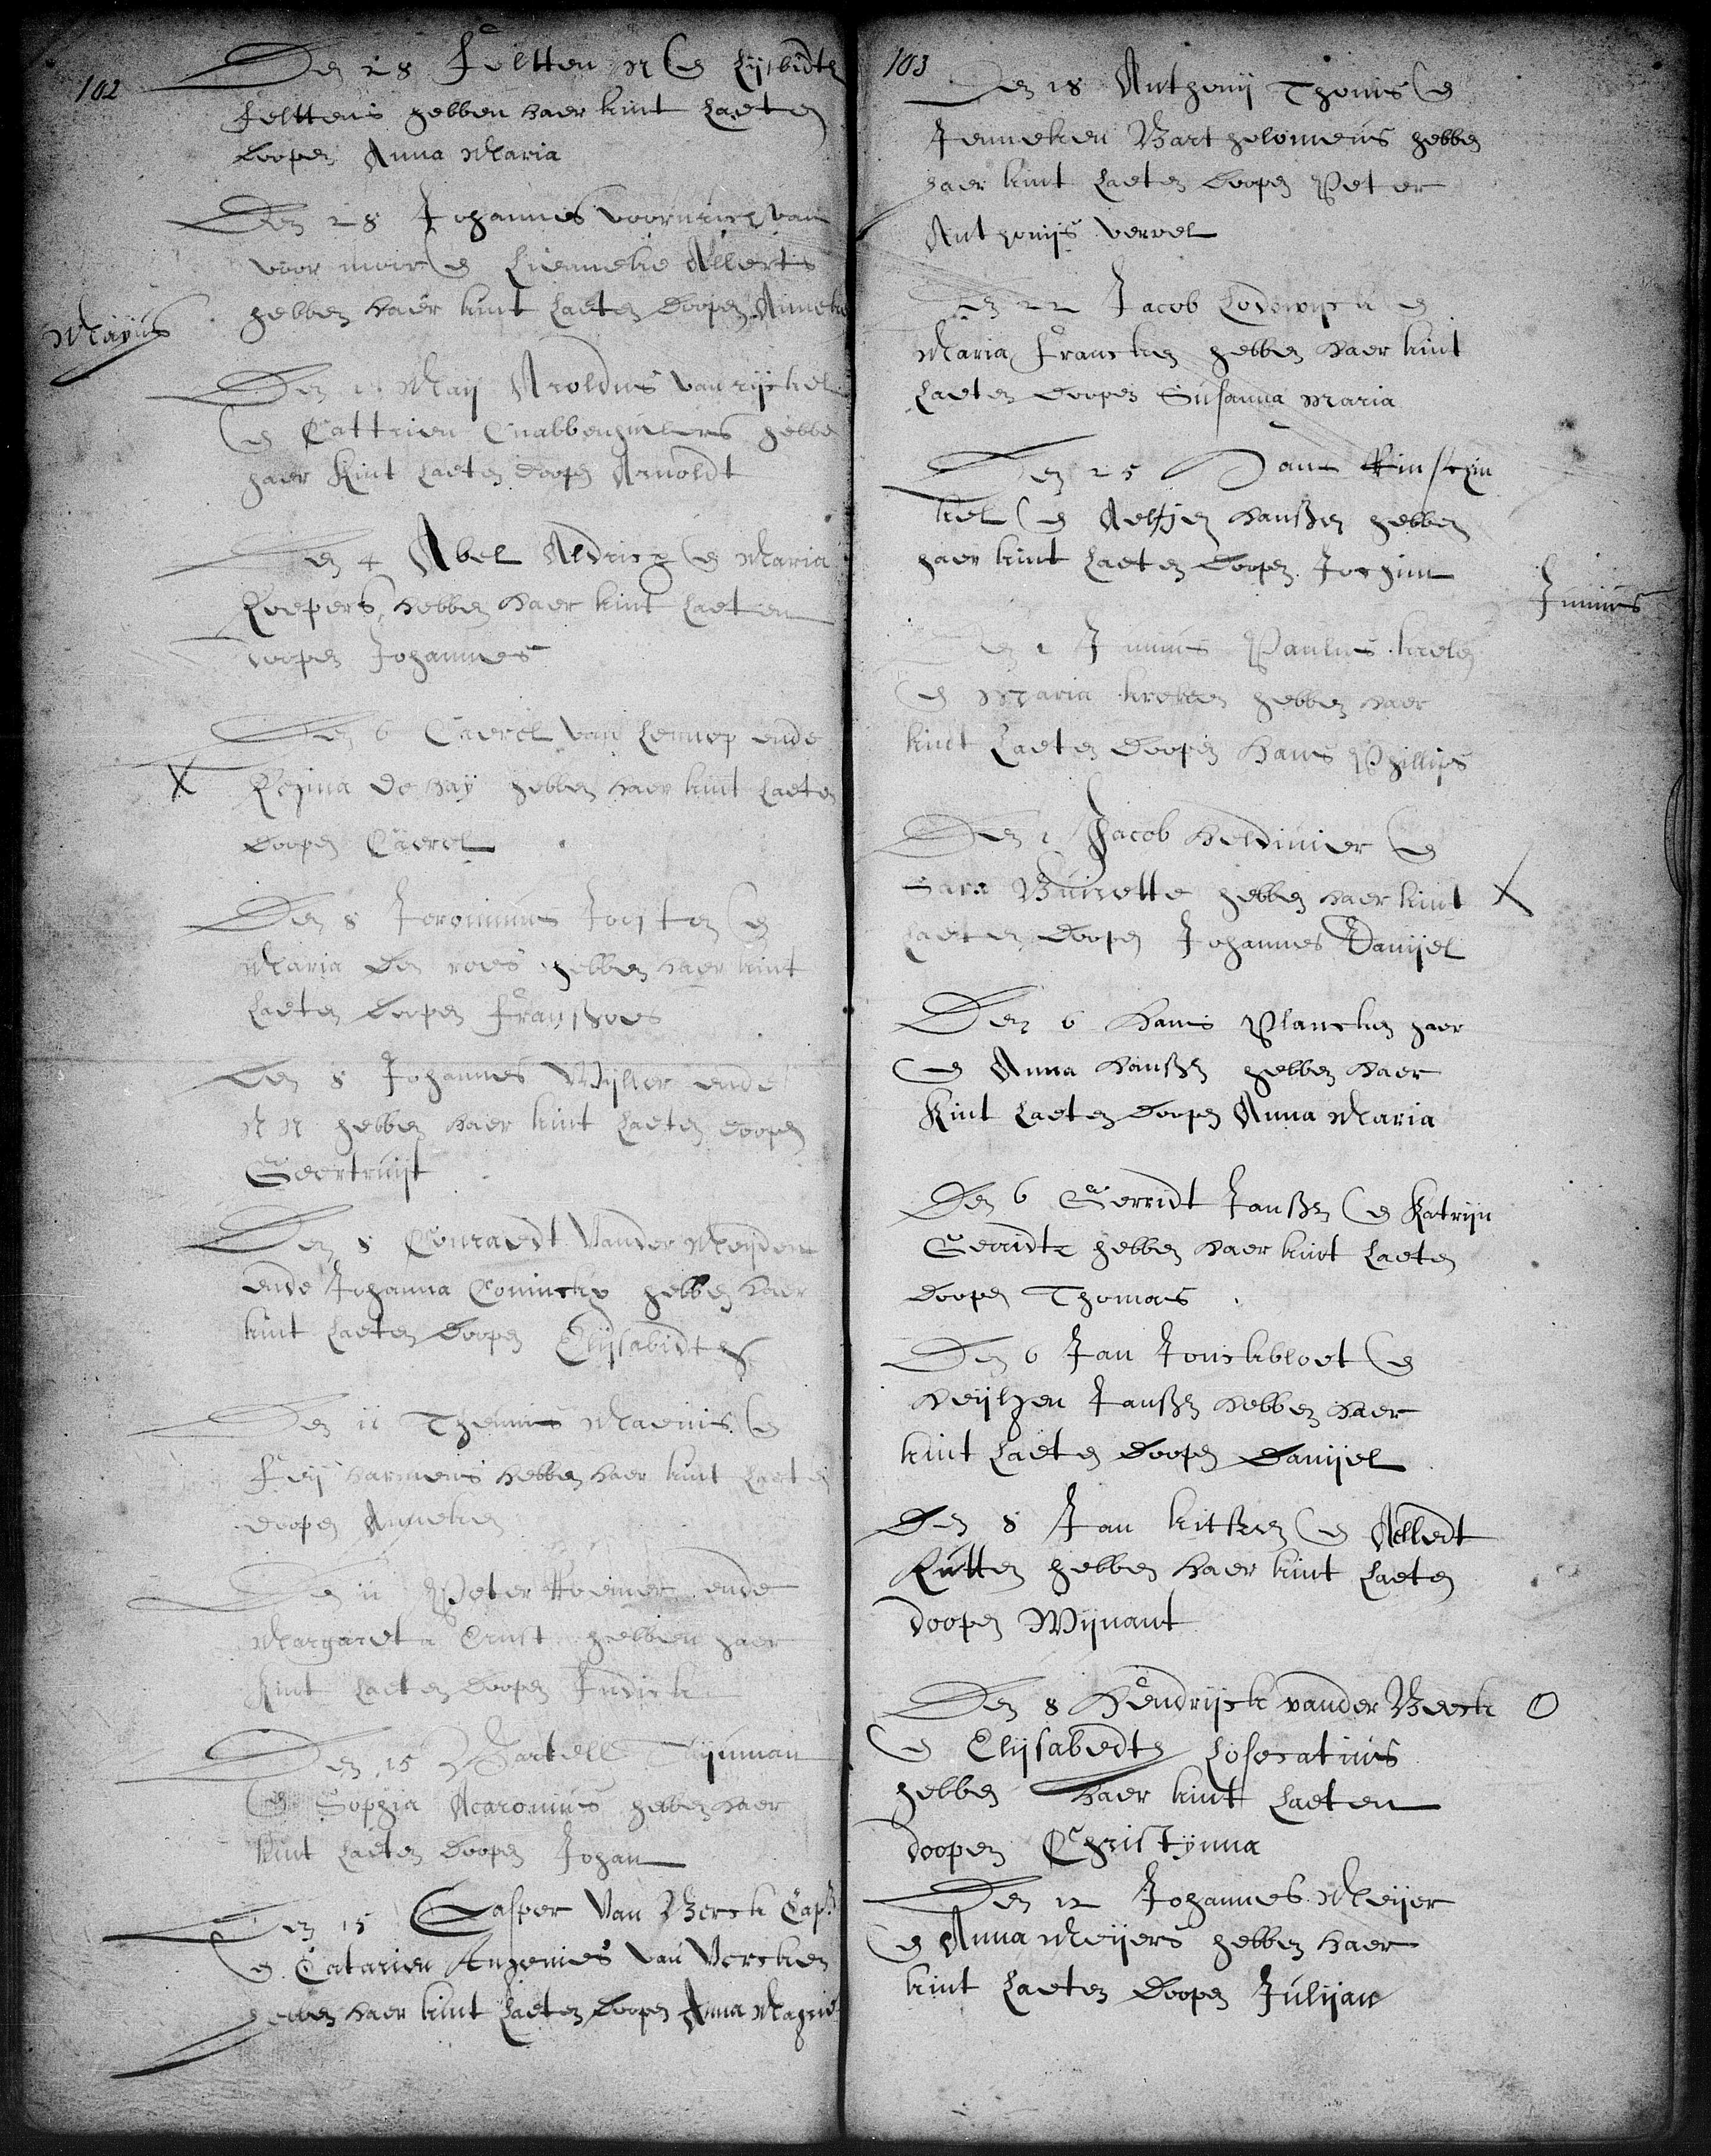 102
Den 28 Feltten N en Lijsbidth
Felttens hebben haer kint Laeten
doopen Anna Maria
Den 28 Johannes van
voor en Lienneke Allerts
hebben haer kint Laeten doopen Anneke
Mayus
Den May Aroldus van rijckel
en Cattrien hebben
haer Kint Laeten doopen Arnoldt
Den 4 Abel Aldricx en Maria
Loepers hebben haer kint Laeten
doopen Johannes
Den 6 Caerel van Lennep ende
X Regina de haij hebben haer kint Laeten
doopen Caerel
Den 8 Jeronimus Joosten en
Maria den roes hebben haer kint
Laeten doopen
Den 8 Johannes Wijller ende
N N hebben haer kint Laeten doopen
Geertruijt
Den 8 Conraedt Vander Meijden
ende Johanna Coninckx hebben haer
kint Laeten doopen Elijsabidth
Den 11 Theunis Maenis en
Feij harmens hebben haer kint Laeten
doopen Anneken
Den 11 Peter ende
Margareta Ernst hebben haer
Kint Laeten doopen Judick
Den 15 Bartell Tijnman
en Sophia Acaronius hebben haer
kint Laeten doopen Johan
Den 15 Casper Van Berck Cap.
en Catarien van Vercken
hebben haer kint Laeten doopen Anna
103
Den 18 Anthonij Thonis en
Jenneken Barthelomeus hebben
haer kint Laeten doopen Peter
Anthonijs vervel
Den 22 Jacob Lodewijck en
Maria Francken hebben haer kint
Laeten doopen Susanna Maria
Den 25 Hans
kel en Aeltjen hanssen hebben
haer kint Laeten doopen Jochim
Junius
Den 1 Junius Paulus
en Maria hebben haer
kint Laeten doopen Hans Phillips
Den 1 Jacob Heldinier en
Sara Buirette hebben haer kint X
Laeten doopen Johannes Danijel
Den 6 Hans Plancken haer
en Anna Hanssen hebben haer
Kint Laeten doopen Anna Maria
Den 6 Gerridt Janssen en Katrijn
Gerridtz hebben haer kint Laeten
doopen Thomas
Den 6 Jan Jonckbloet en
Neijltjen Janssen hebben haer
kint Laeten doopen Danijel
Den 8 Jan en Alledt
Rutten hebben haer kint Laeten
doopen Wijnant
Den 8 Hendrijck vander Beeck O
en Elijsabedth Losecatius
hebben haer kint Laeten
doopen Christijnna
Den 12 Johannes Meijer
en Anna Meijers hebben haer
kint Laeten doopen Julijan